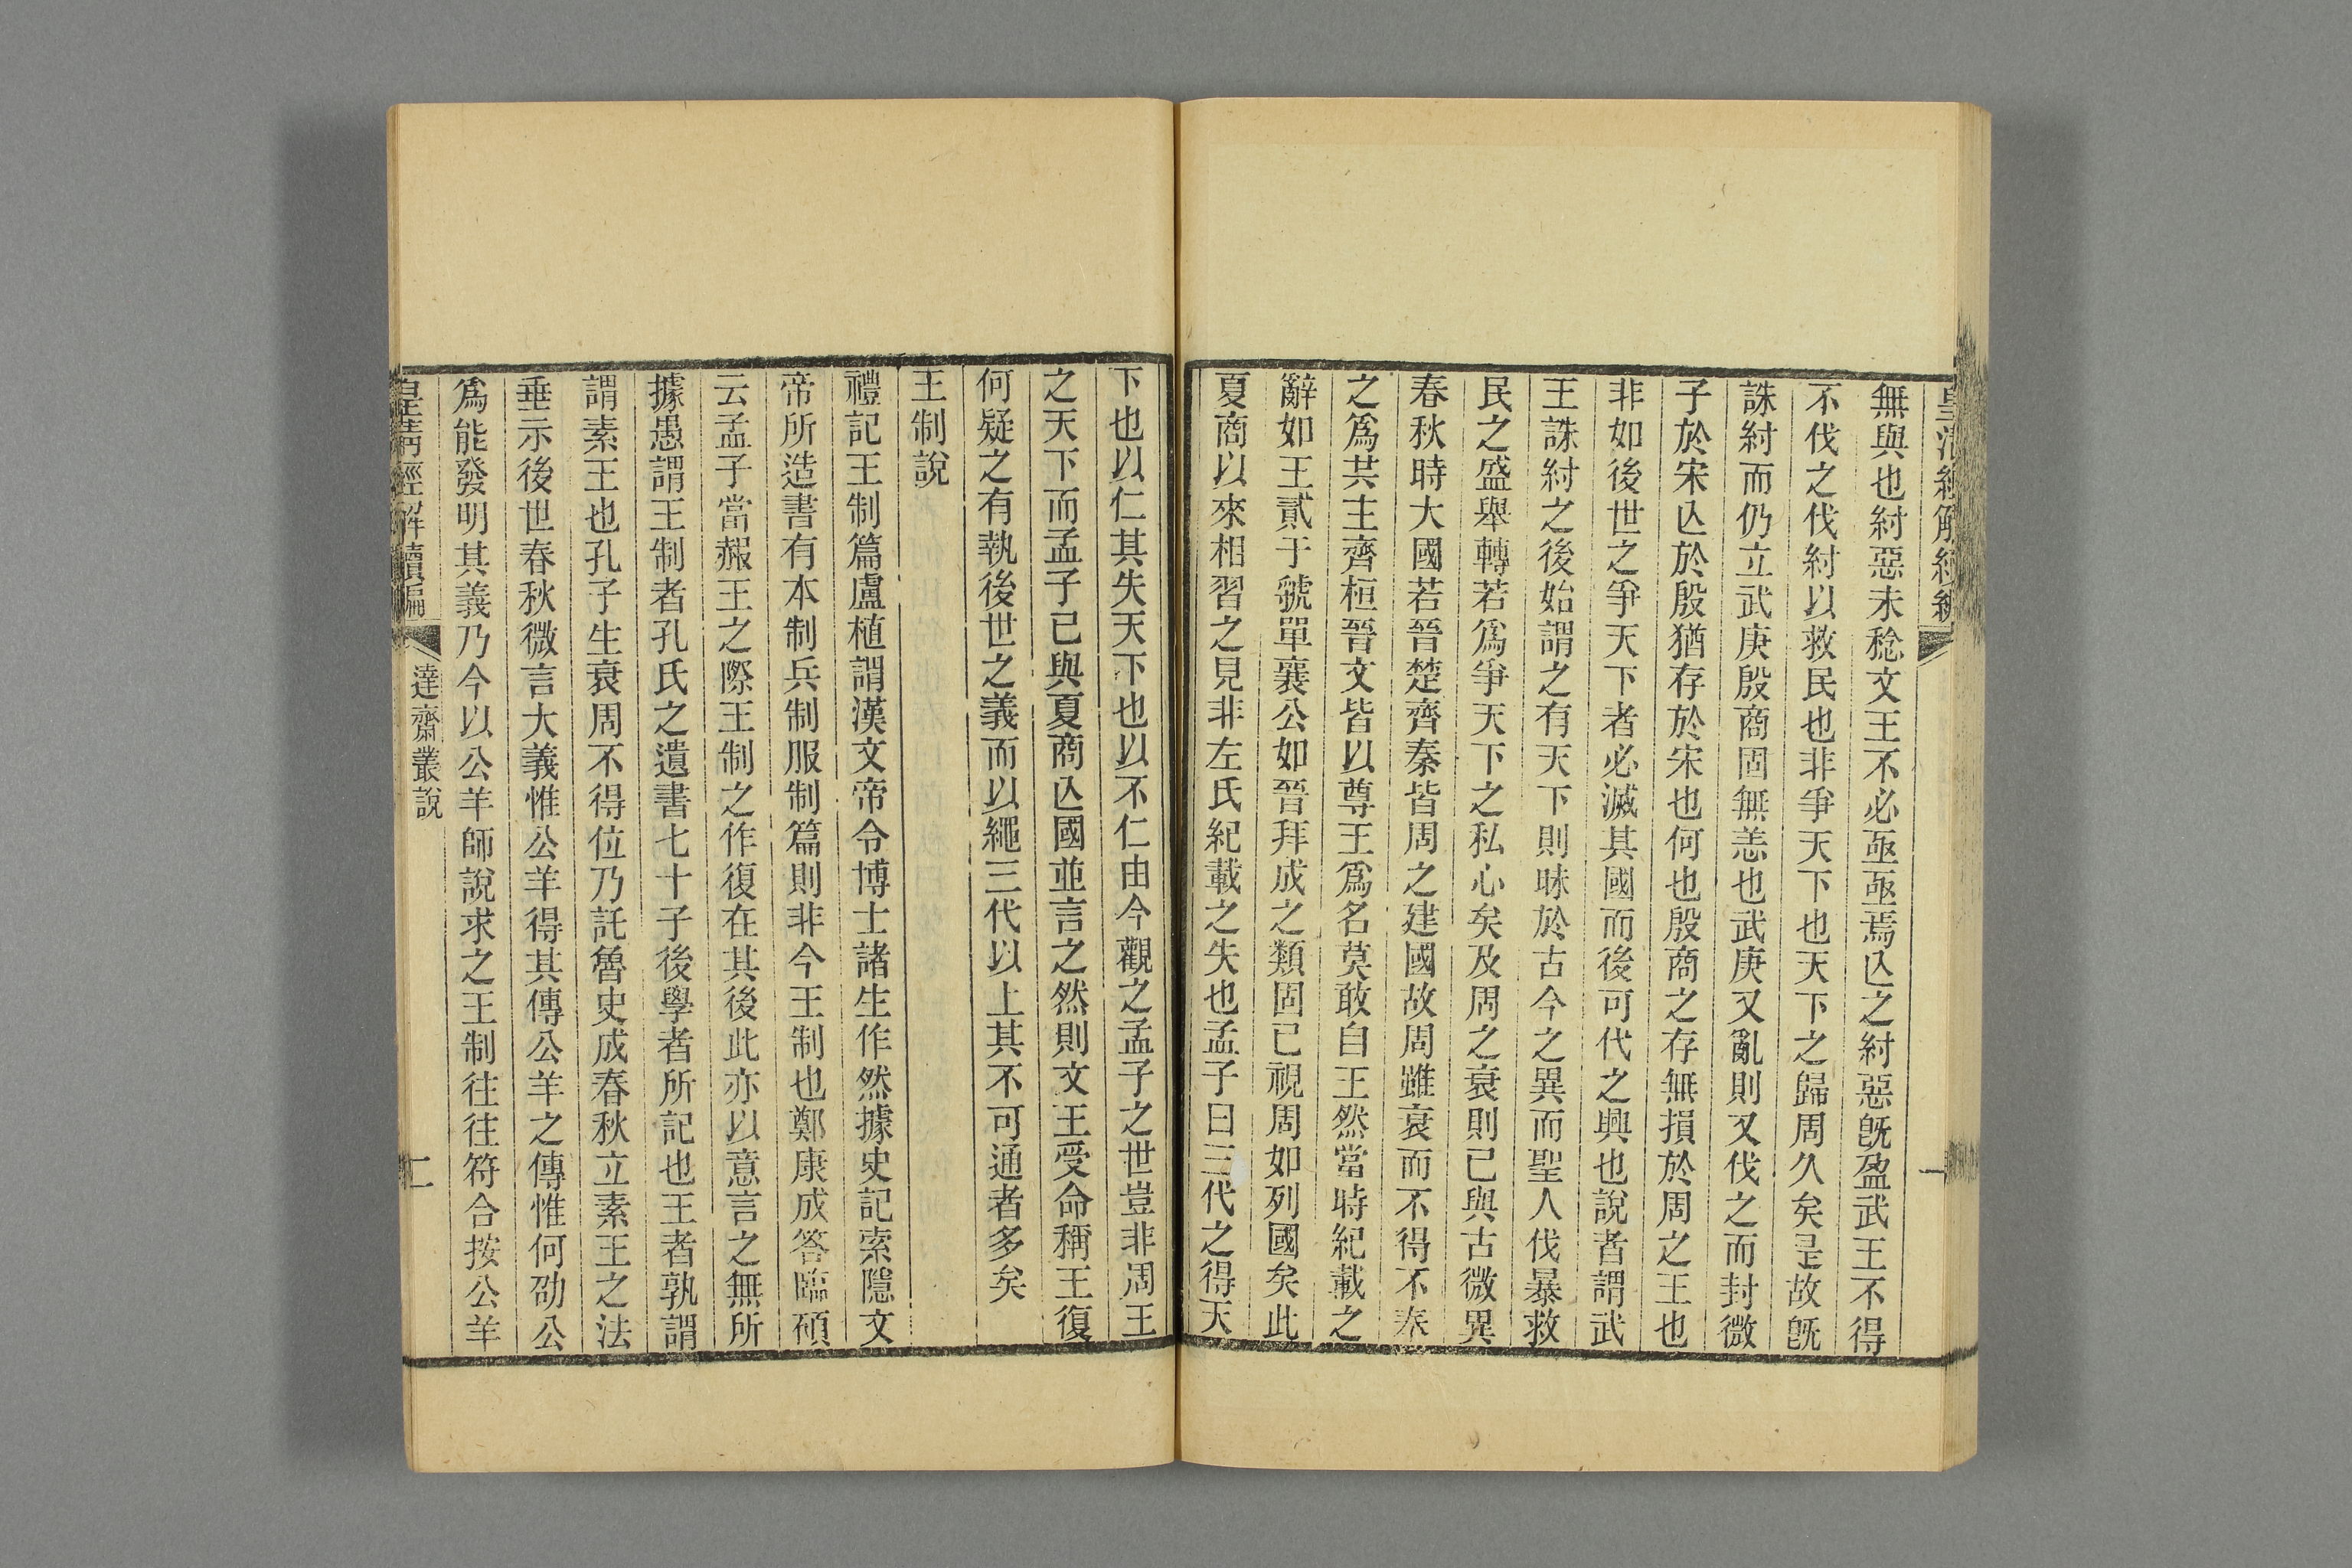 無與也紂惡未稔文王不必亟亟焉亾之紂惡旣盈武王不得
不伐之伐紂以救民也非爭天下也天下之歸周久矣是故旣
誅紂而仍立武庚殷商固無恙也武庚又亂則又伐之而封微
子於宋亾於殷猶存於宋也何也殷商之存無損於周之王也
非如後世之爭天下者必滅其國而後可代之興也說者謂武
王誅紂之後始謂之有天下則昧於古今之異而聖人伐暴救
民之盛舉轉若爲爭天下之私心矣及周之衰則已與古微異
春秋時大國若晉楚齊秦皆周之建國故周雖衰而不得不奉
之爲共主齊桓晉文皆以尊王爲名莫敢自王然當時紀載之
辭如王貳于虢單襄公如晉拜成之類固已視周如列國矣此
夏商以來相習之見非左氏紀載之失也孟子曰三代之得天
下也以仁其失天下也以不仁由今觀之孟子之世豈非周王
之天下而孟子已與夏商亾國並言之然則文王受命稱王復
何疑之有執後世之義而以繩三代以上其不可通者多矣
王制說
禮記王制篇盧植謂漢文帝令博士諸生作然據史記索隱文
帝所造書有本制兵制服制篇則非今王制也鄭康成答臨碩
云孟子當赧王之際王制之作復在其後此亦以意言之無所
據愚謂王制者孔氏之遺書七十子後學者所記也王者孰謂
謂素王也孔子生衰周不得位乃託魯史成春秋立素王之法
垂示後世春秋微言大義惟公羊得其傳公羊之傳惟何劭公
爲能發明其義乃今以公羊師說求之王制往往符合按公羊
皇清經解續編
達齋叢說
二